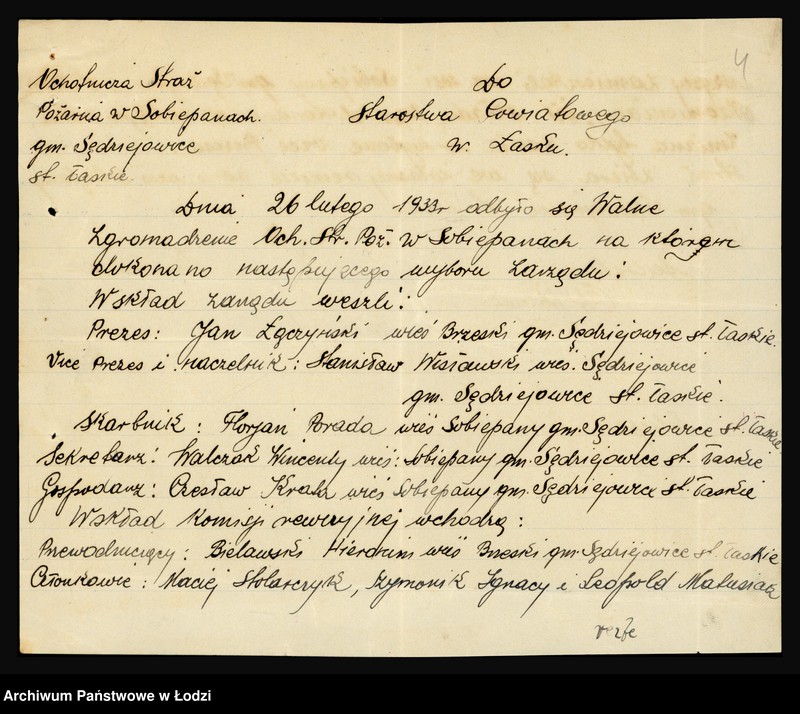 4
Ochotnicza Straż
Pożarna w Sobiepanach.
gm. Sędziejowice
st. Łaskie
Do
Starostwa Powiatowego
w. Łasku.
Dnia 26 lutego 1933r odbyło się Walne
Zgromadzenie Och. Str. Poż. w Sobiepanach na którym
dokonano następującego wyboru zarządu:
Wskład zarządu weszli:
Prezes: Jan Łączyński wieś Brzeski gm. Sędziejowice st. Łaskie.
Vice Prezes i naczelnik: Stanisław Wisławski wieś. Sędziejowice
gm. Sędziejowice st. Łaskie.
Skarbnik: Florjan Porada wieś Sobiepany gm. Sędziejowice st. Łaskie
Sekretarz: Walczak Wincenty wieś: Sobiepany gm. Sędziejowice st. Łaskie
Gospodarz: Czesław wieś Sobiepany gm. Sędziejowice st. Łaskie
Wskład Komisji rewizyjnej wchodzą:
Przewodniczący: Bielawski wieś Brzeski gm. Sędziejowice st. Łaskie
Członkowie: Maciej Stolarczyk, Szymonik Ignacy i Leopold Matusiak
Archiwum Państwowe w Łodzi